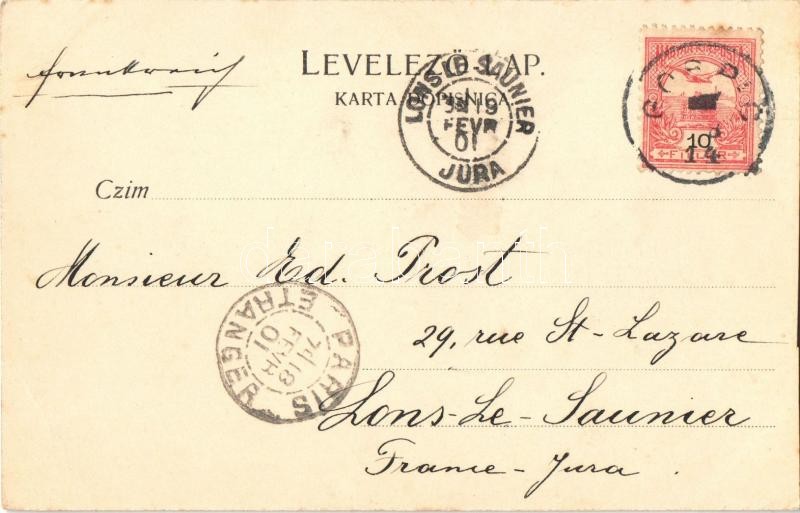 Frankreich
LEVELEZŐ-LAP.
KARTA DOPISNICA.
LONS-LE-SAUNIER
19
FEVR
01
JURA
GOSPIĆ
14
10
FILLÉR
Czim
Monsieur Ed. Prost
PARIS ETRANGER
18
FEVR
01
29, rue St-Lazare
Lons-Le-Saunier
France-Jura.